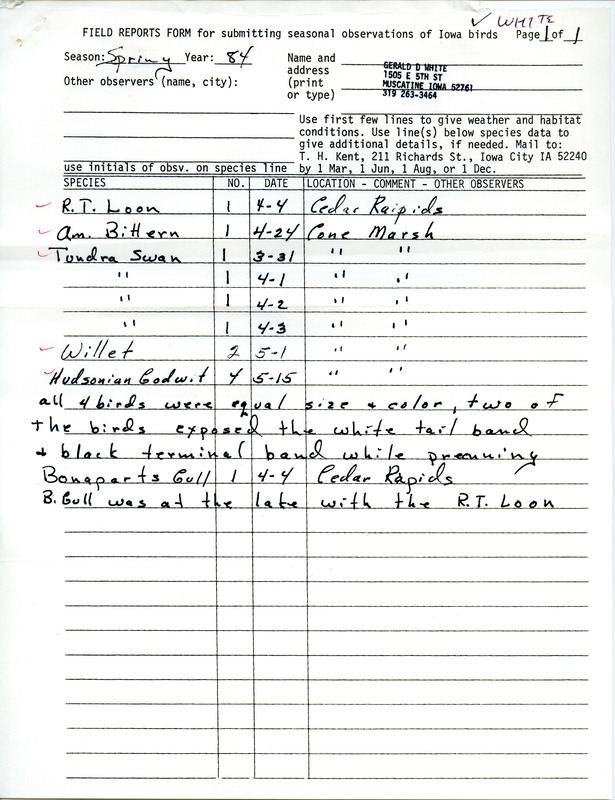 ✓ WHITE
FIELD REPORTS FORM for submitting seasonal observations of Iowa birds Page 1 of 1
Season: Spring Year: 84
Other observers (name, city):
Name and
address
(print
or type)
GERALD D WHITE
1505 E 5TH ST
MUSCATINE IOWA 52761
319 263-3464
Use first few lines to give weather and habitat
conditions. Use line(s) below species data to
give additional details, if needed. Mail to:
T. H. Kent, 211 Richards St., Iowa City IA 52240
by 1 Mar, 1 Jun, 1 Aug, or 1 Dec.
use initials of obsv. on species line
SPECIES NO. DATE LOCATION - COMMENT - OTHER OBSERVERS
R.T. Loon 1 4-4 Cedar Raipids
Am. Bittern 1 4-24 Cone Marsh
Tundra Swan 1 3-31 " "
" 1 4-1 " "
" 1 4-2 " "
" 1 4-3 " "
Willet 2 5-1 " "
Hudsonian Godwit 4 5-15 " "
all 4 birds were equal size + color, two of
the birds exposed the white tail band
+ black terminal band while preuning
Bonaparts Gull 1 4-4 Cedar Rapids
B. Gull was at the lake with the R.T. Loon